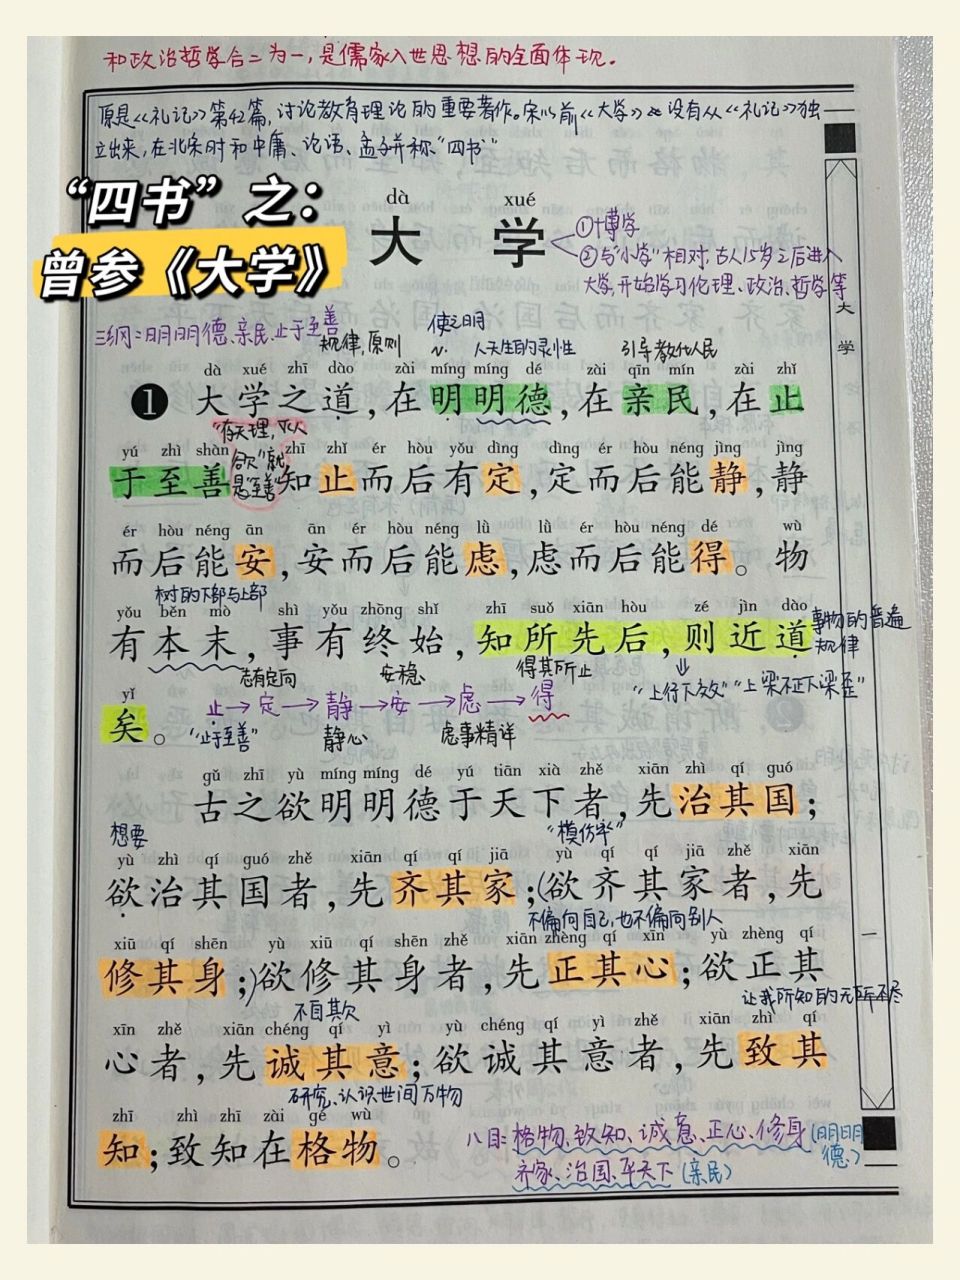 和政治哲学合二为一,是儒家入世思想的全面体现。
原是《礼记》第42篇,讨论教育理论的重要著作。宋以前《大学》没有从《礼记》独
立出来,在北宋时和中庸、论语、孟子并称"四书"
“四书”之：
曾参《大学》
dà xué
大学
①博学
②与"小学"相对,古人15岁之后进入
大学,开始学习伦理、政治、哲学等
大学
三纲:明明德、亲民、止于至善
规律,原则
使之明
人天生的灵性
引导教化人民
dà xué zhī dào zài míng míng dé zài qīn mín zài zhǐ
❶ 大学之道,在明明德,在亲民,在止
"存天理,灭人
欲"就
是"至善"
yú zhì shàn zhī zhǐ ér hòu yǒu dìng dìng ér hòu néng jìng jìng
于至善。知止而后有定,定而后能静,静
ér hòu néng ān ān ér hòu néng lǜ lǜ ér hòu néng dé wù
而后能安,安而后能虑,虑而后能得。物
树的下部与上部
yǒu běn mò shì yǒu zhōng shǐ zhī suǒ xiān hòu zé jìn dào
有本末,事有终始,知所先后,则近道
事物的普遍
规律
志有定向
安稳
得其所止
"上行下效""上梁不正下梁歪"
yǐ
矣。
止→定→静→安→虑→得
"止于至善"
静心
虑事精详
gǔ zhī yù míng míng dé yú tiān xià zhě xiān zhì qí guó
古之欲明明德于天下者,先治其国;
想要
"模仿率"
yù zhì qí guó zhě xiān qí qí jiā yù qí qí jiā zhě xiān
欲治其国者,先齐其家;(欲齐其家者,先
不偏向自己,也不偏向别人
xiū qí shēn yù xiū qí shēn zhě xiān zhèng qí xīn yù zhèng qí
修其身;)欲修其身者,先正其心;欲正其
不自其欺
让我所知的无所不尽
xīn zhě xiān chéng qí yì yù chéng qí yì zhě xiān zhì qí
心者,先诚其意;欲诚其意者,先致其
研究、认识世间万物
zhī zhì zhī zài gé wù
知;致知在格物。
八目:格物、致知、诚意、正心、修身(明明
德)
齐家、治国、平天下(亲民)
一